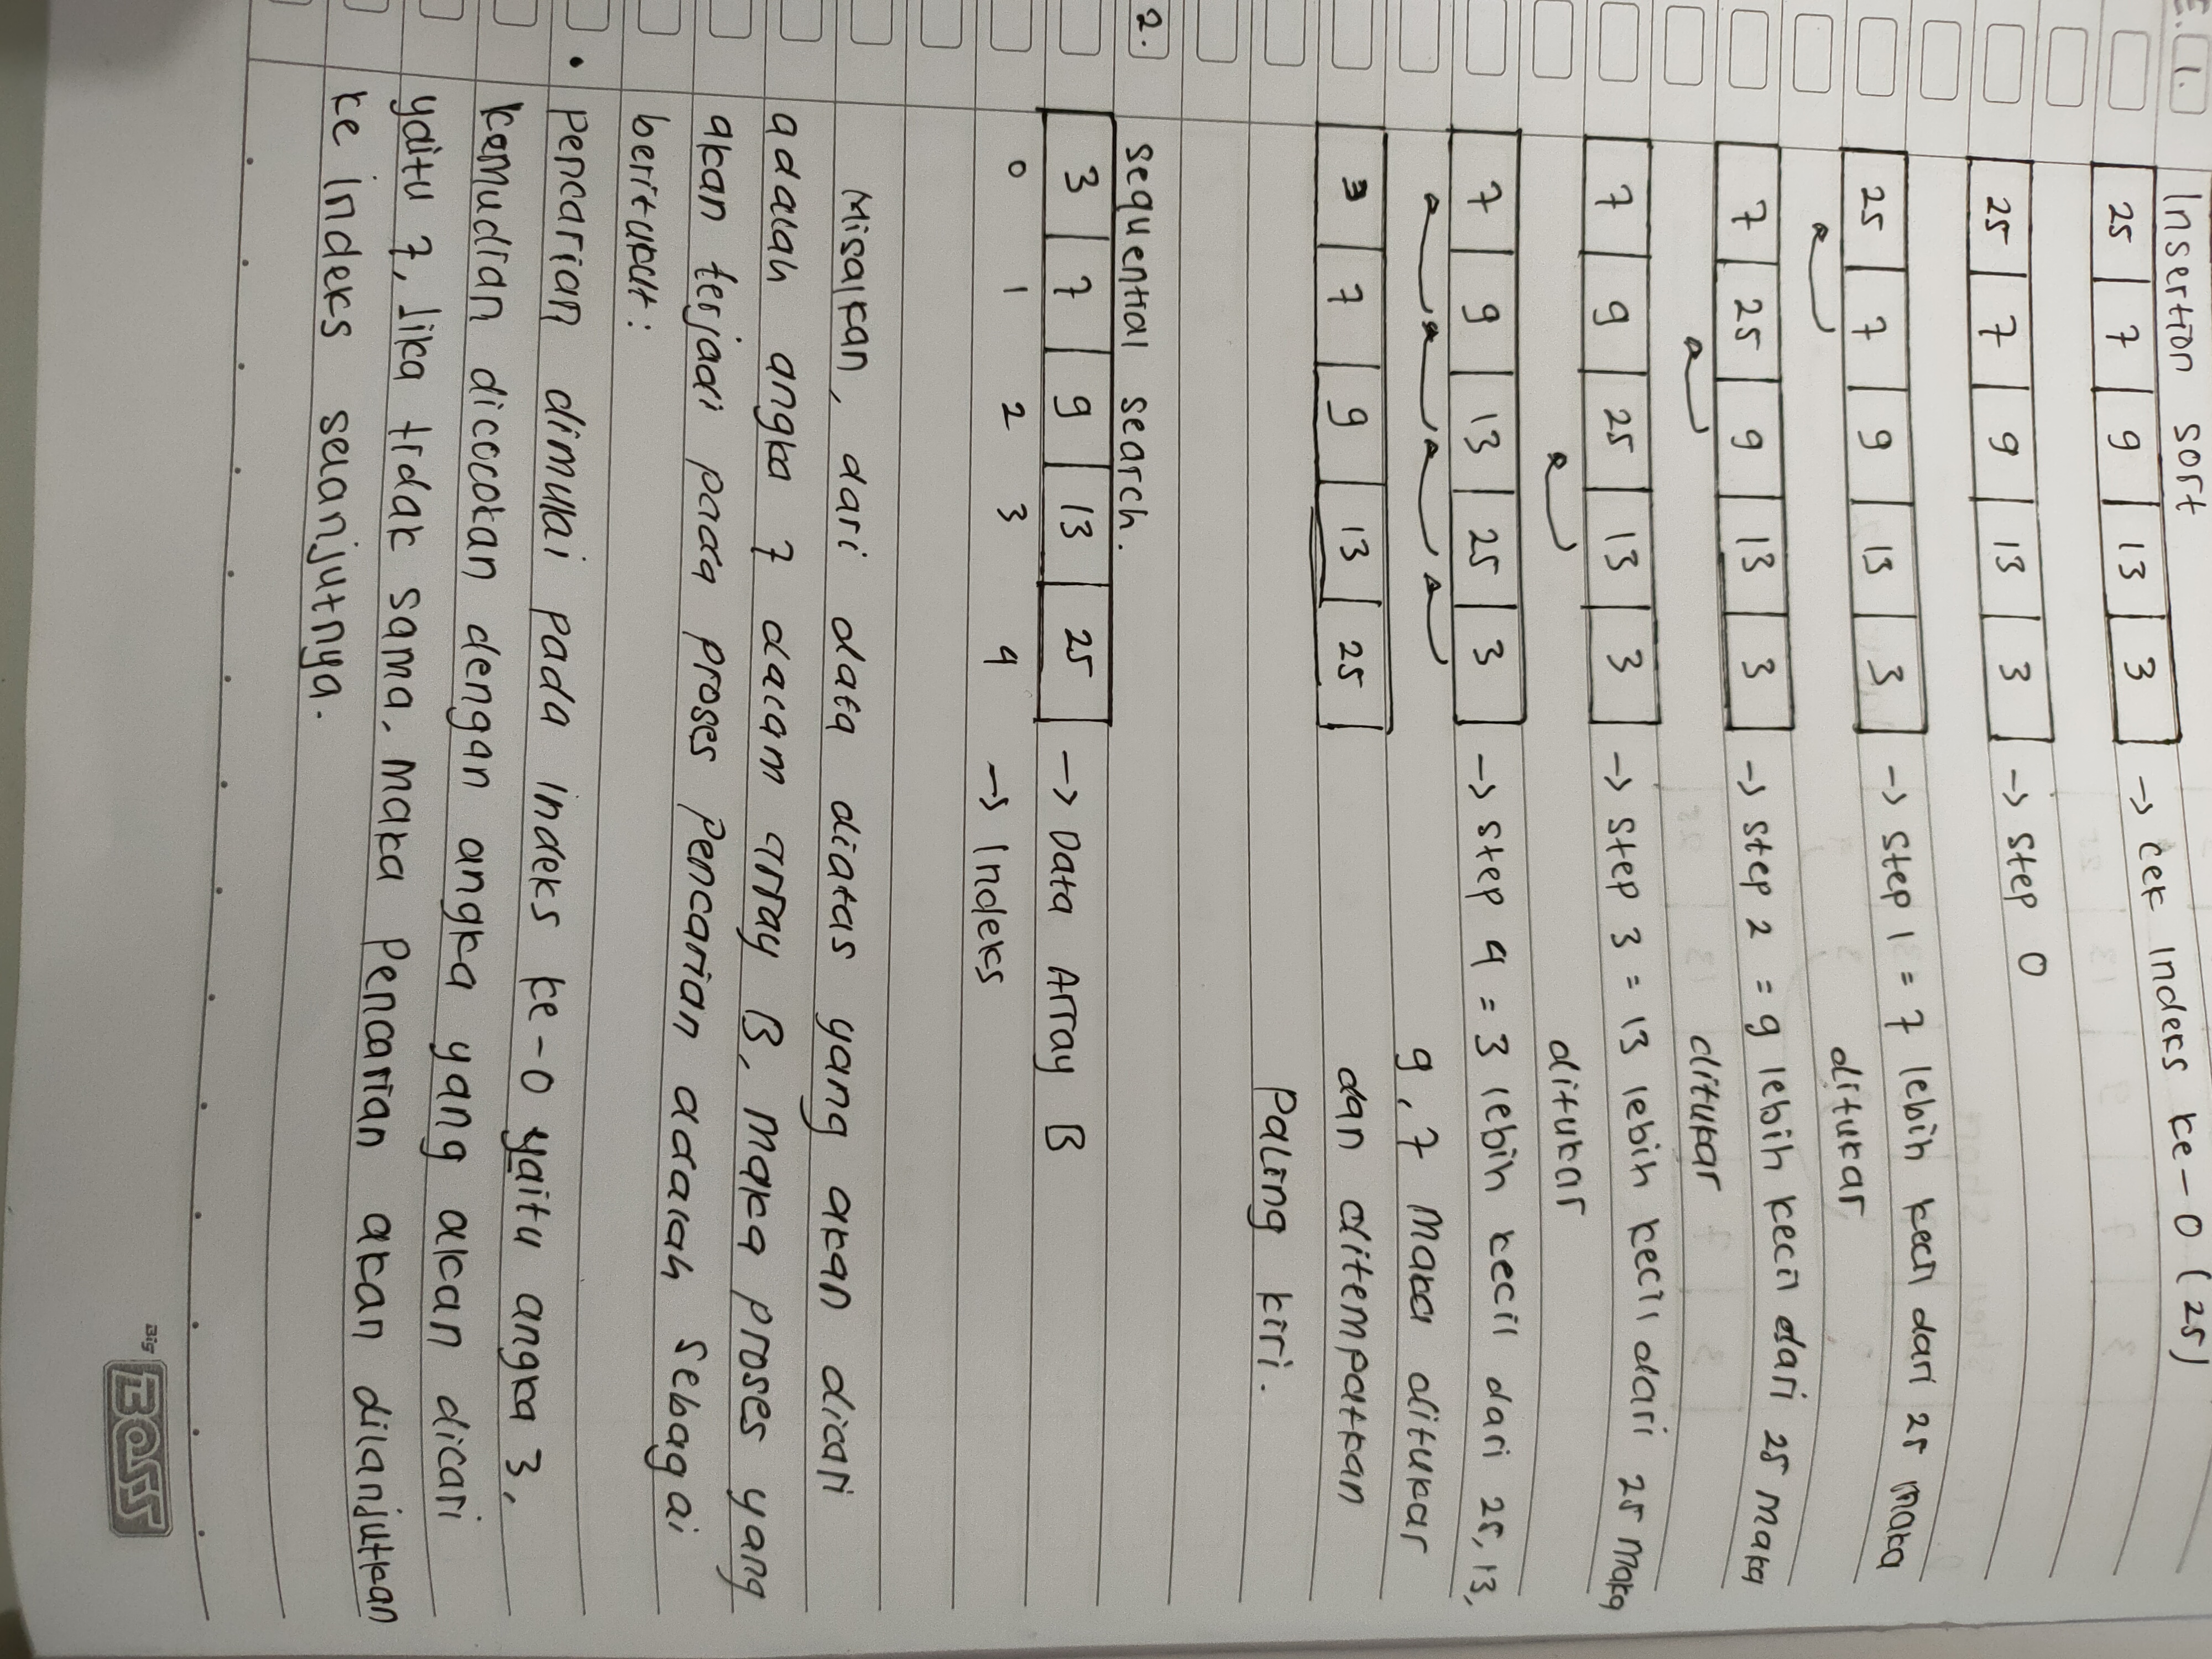 E. 1. Insertion sort
25 7 9 13 3 -> cek indeks ke-0 (25)
25 7 9 13 3 -> step 0
25 7 9 13 3 -> step 1 = 7 lebih kecil dari 25 maka
ditukar
7 25 9 13 3 -> step 2 = 9 lebih kecil dari 25 maka
ditukar
7 9 25 13 3 -> step 3 = 13 lebih kecil dari 25 maka
ditukar
7 9 13 25 3 -> step 4 = 3 lebih kecil dari 25, 13,
9, 7 maka ditukar
3 7 9 13 25 dan ditempatkan
Paling kiri.
2. sequential search.
3 7 9 13 25 -> Data Array B
0 1 2 3 4 -> Indeks
Misalkan, dari data diatas yang akan dicari
adalah angka 7 dalam array B, maka proses yang
akan terjadi pada proses pencarian adalah sebagai
berikut:
• Pencarian dimulai pada indeks ke-0 yaitu angka 3,
kemudian dicocokan dengan angka yang akan dicari
yaitu 7, Jika tidak sama, maka pencarian akan dilanjutkan
ke indeks seanjutnya.
Big
BOSS